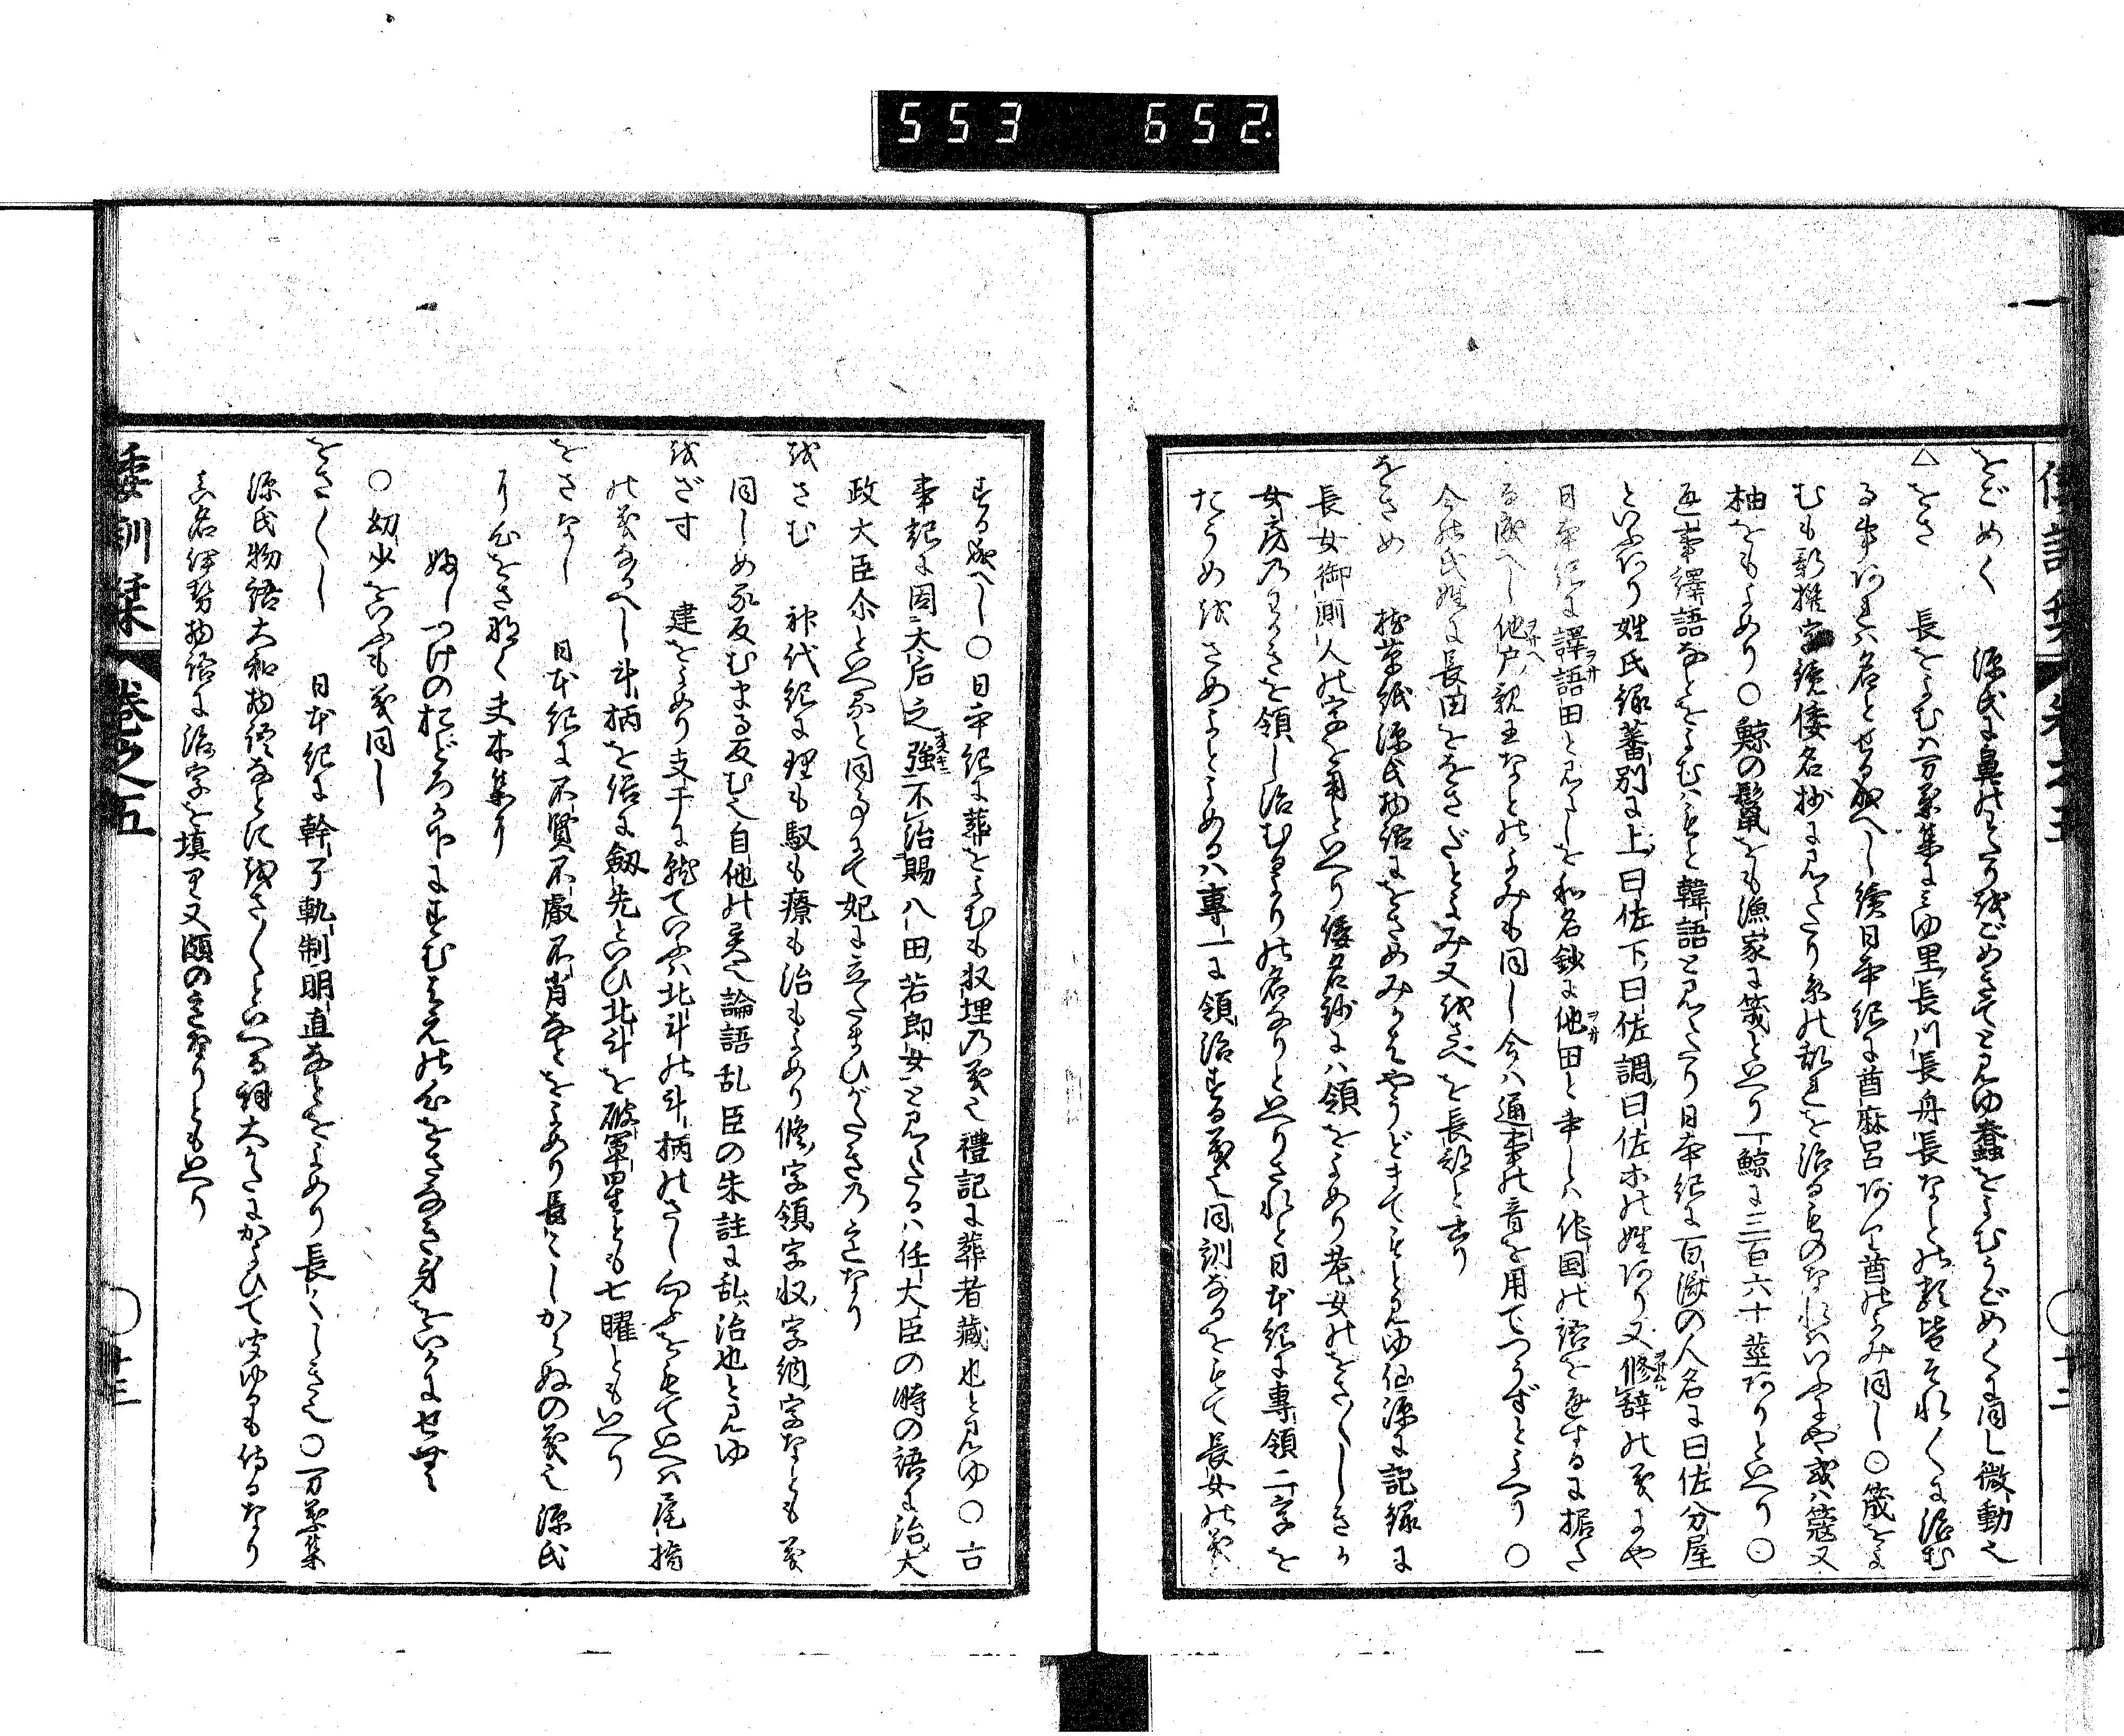 553 652.
をごめく 源氏に鼻のわたりをごめきてと見ゆ蠢をよむうごめくに同し微動也
△をさ 長をよむハ万葉集に見ゆ里長川長舟長なとの類皆それ〱に治む
る事あれハ名とせる成へし續日本紀に酋麻呂あり酋のよみ同し○筬をよ
むも新撰字鏡倭名抄に見えたり糸の乱れを治るものなれハいふにや或ハ蔲又
柚をもよめり○鯨の鬣をも漁家に筬といへり一鯨に三百六十莖ありといへり○
通事譯語なとをよむハもと韓語と見えたり日本紀に百濟の人名に曰佐分屋
といふあり姓氏録蕃別に上曰佐下曰佐調曰佐等の姓あり又修辞の義にや
日本紀に譯語田と見えしを和名鈔に他田と書しハ他国の語を通するに据た
る成へし他戸親王なとのよみも同し今ハ通事の音を用てつうずといへり○
今の氏姓に長田ををさだとよみ又をさべを長部と書り
をさめ 枕草紙源氏物語にをさめみかはやうどまてもと見ゆ仙源に記録に
長女御厠人の字を用といへり倭名鈔にハ領をよめり老女のをさ〱しきか
女房のわさを領し治むるよりの名なりといへりされと日本紀に專領二字を
たうめをさめよとよめるハ專一に領治する義也同訓なるをもて長女の義
倭訓栞 巻之五 ○十二
する成へし○日本紀に葬をよむも収埋の義也禮記に葬者藏也と見ゆ○古
事記に因大后之強不治賜八田若郎女と見えたるハ任大臣の時の語に治大
政大臣尓といへると同しくて妃に立たまひかたきの意なり
をさむ 神代紀に理も馭も療も治もよめり修字領字収字納字なとも義
同しめ反むまる反む也自他の異也論語乱臣の朱註に乱治也と見ゆ
をざす 建をよめり支干に就ていふハ北斗の斗柄のさし向ふをもていへハ尾指
の義なるへし斗柄を俗に劔先といひ北斗を破軍星とも七曜ともいへり
をさなし 日本紀に不賢不叡不肖なとをよめり長〱しからぬの義也源氏
に心をさなく夫木集に
ぬしつけのおどろか下にすむ の心をさなき身をいかにせむ
○幼少をいふも義同し
をさ〱し 日本紀に幹了軌制明直なとをよめり長〱しき也○万葉集
源氏物語大和物語なとにをさ〱といへる詞大かたにかよひて聞ゆるも侍るなり
真名伊勢物語に治字を填り又頗の意なりともいへり
倭訓栞 巻之五 ○十三